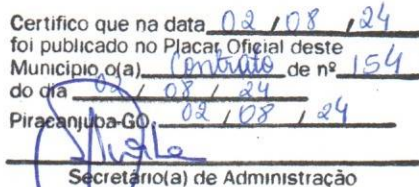 Certifico que na data 02 / 08 / 24
foi publicado no Placar Oficial deste
Município o(a) Contrato de nº 154
do dia 02 / 08 / 24
Piracanjuba-GO, 02 / 08 / 24
Secretário(a) de Administração